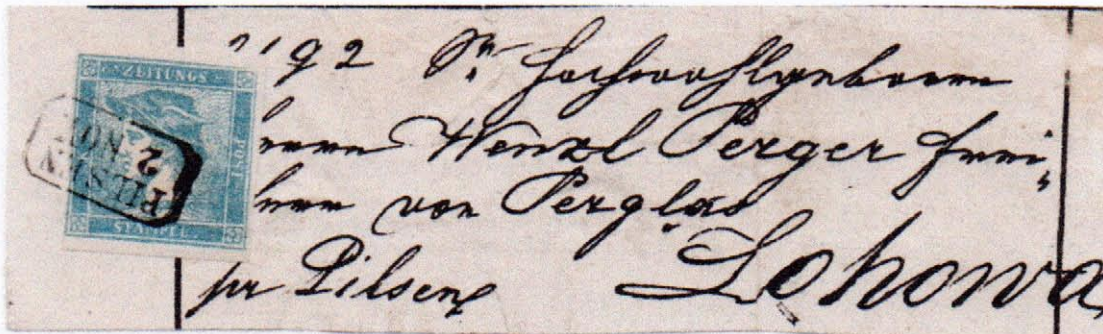 ZEITUNGS
POST
STAMPEL
PILSEN
2 NOV
192 Sr Hochwohlgeboren
Herrn Wenzl Perger Frei„
herrn von Perglas
pr Pilsen Lohowa